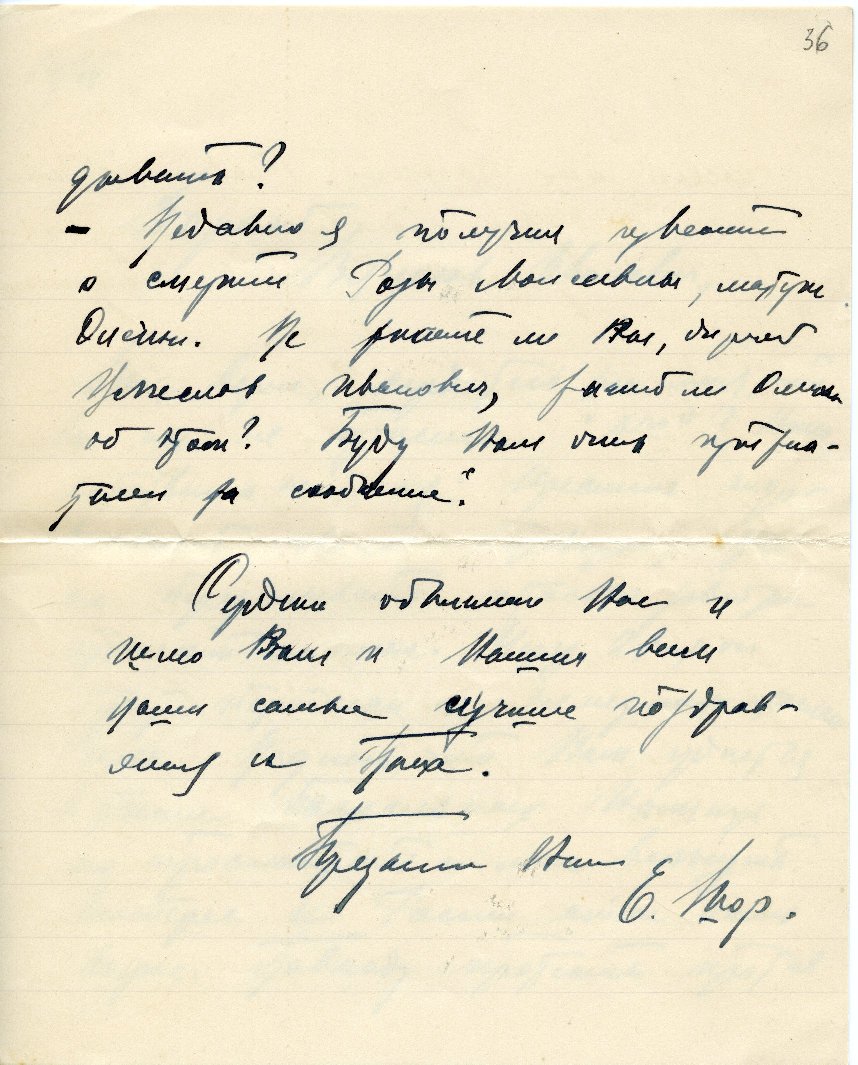 36
дывать?
- Недавно я получил известие
о смерти Розы Моисеевны, матери
Олечки. Не знаете ли Вы, дорогой
Вячеслав Иванович, знает ли Олечка
об этом? Буду Вам очень призна-
телен за сообщение.
Сердечно обнимаю Вас и
шлю Вам и Вашим всем
наши самые лучшие поздрав-
ления
Преданный Вам
Е. Шор.